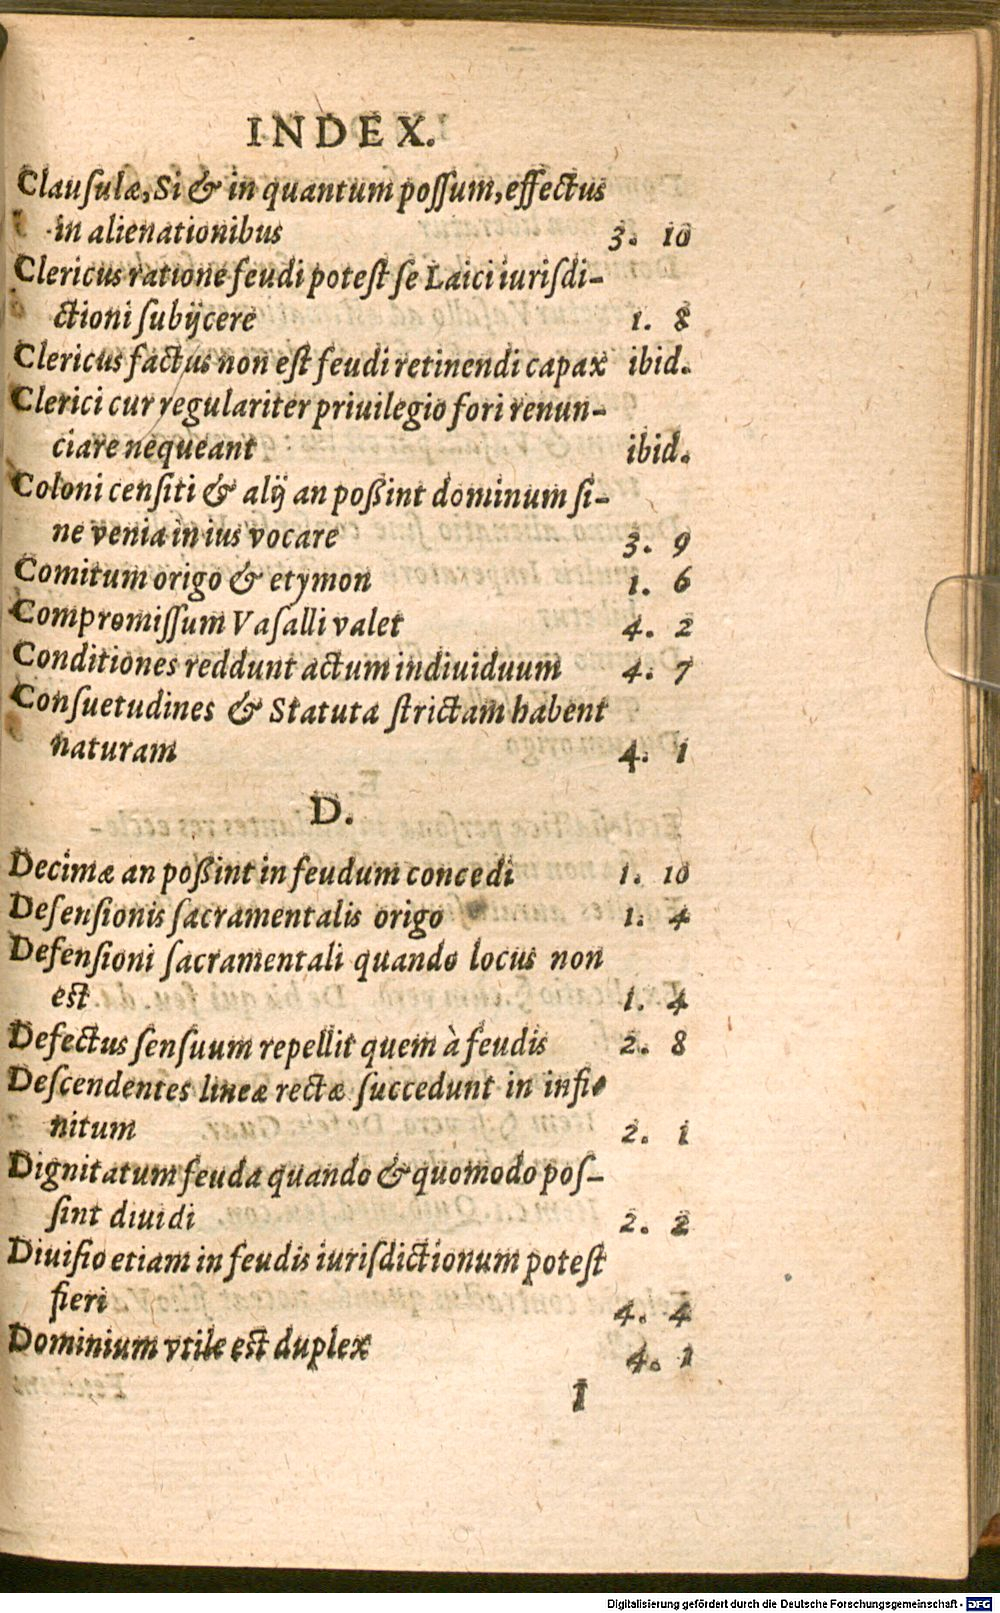 INDEX.
Clauſulæ, Si & in quantum poſſum, effectus
in alienationibus 3. 10
Clericus ratione feudi poteſt ſe Laici iuriſdi-
ctioni ſubijcere 1. 8
Clericus factus non eſt feudi retinendi capax ibid.
Clerici cur regulariter priuilegio fori renun-
ciare nequeant ibid.
Coloni cenſiti & alij an poßint dominum ſi-
ne venia in ius vocare 3. 9
Comitum origo & etymon 1. 6
Compromiſſum Vaſalli valet 4. 2
Conditiones reddunt actum indiuiduum 4. 7
Conſuetudines & Statuta ſtrictam habent
naturam 4. 1
D.
Decimæ an poßint in feudum concedi 1. 10
Defenſionis ſacramentalis origo 1. 4
Defenſioni ſacramentali quando locus non
est 1. 4
Defectus ſenſuum repellit quem à feudis 2. 8
Deſcendentes lineæ rectæ ſuccedunt in infi-
nitum 2. 1
Dignitatum feuda quando & quomodo poſ-
ſint diuidi 2. 2
Diuiſio etiam in feudis iuriſdictionum poteſt
fieri 4. 4
Dominium vtile est duplex 4. 1
I
Digitalisierung gefördert durch die Deutsche Forschungsgemeinschaft - DFG